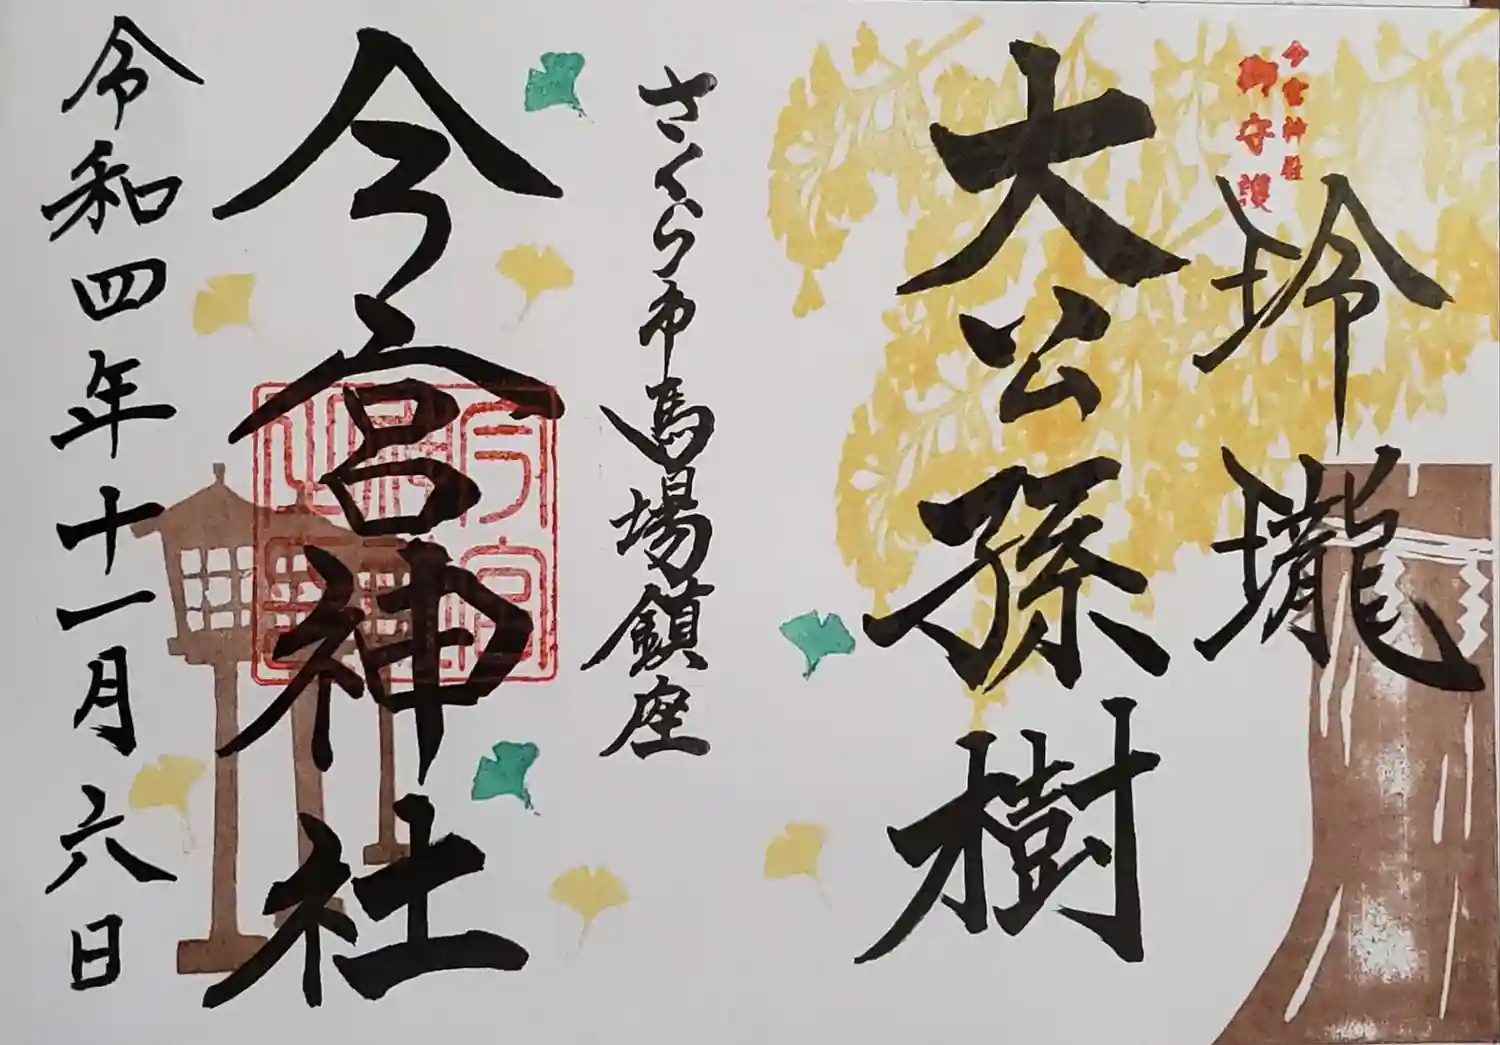 今宮神社
御守護
玲瓏
大公孫樹
さくら市馬場鎮座
今宮神社
今宮神社之印
令和四年十一月六日